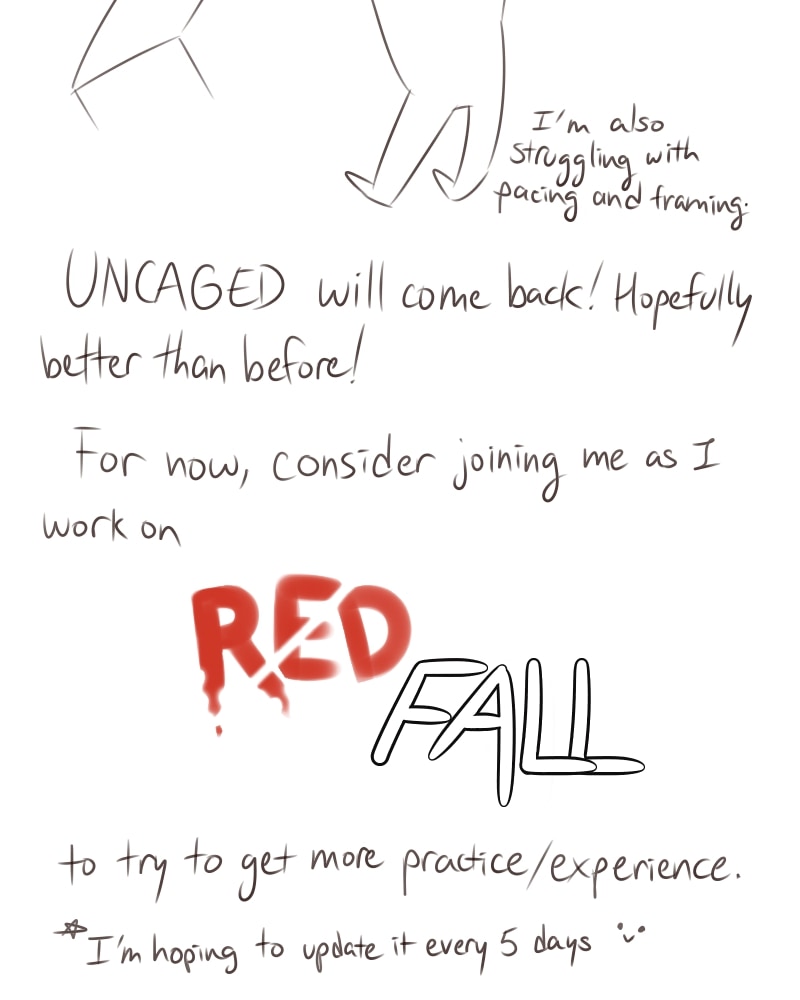 I'm also
struggling with
pacing and framing.
UNCAGED will come back! Hopefully
better than before!
For now, consider joining me as I
work on
RED
FALL
to try to get more practice/experience.
*I'm hoping to update it every 5 days